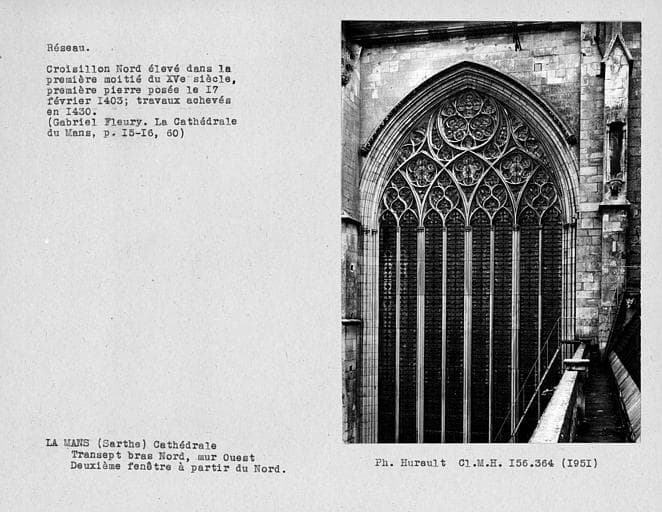 Réseau.
Croisillon Nord élevé dans la
première moitié du XVe siècle,
première pierre posée le I7
février I403; travaux achevés
en I430.
(Gabriel Fleury. La Cathédrale
du Mans, p. I5-I6, 60)
LA MANS (Sarthe) Cathédrale
Transept bras Nord, mur Ouest
Deuxième fenêtre à partir du Nord.
Ph. Hurault Cl.M.H. I56.364 (I95I)